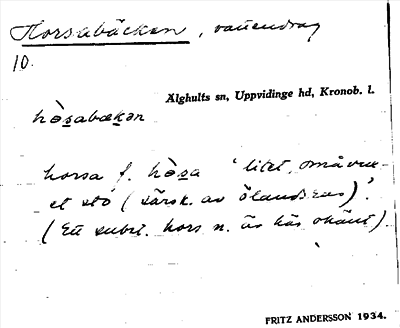 Horsabäcken, vattendrag
10.
Älghults sn, Uppvidinge hd, Kronob. l.
hòsabækən
horsa f. hòsa 'litet, småvux-
et sto (särsk. av ölandsras)'.
(Ett subst. hors n. är här okänt).
FRITZ ANDERSSON 1934.